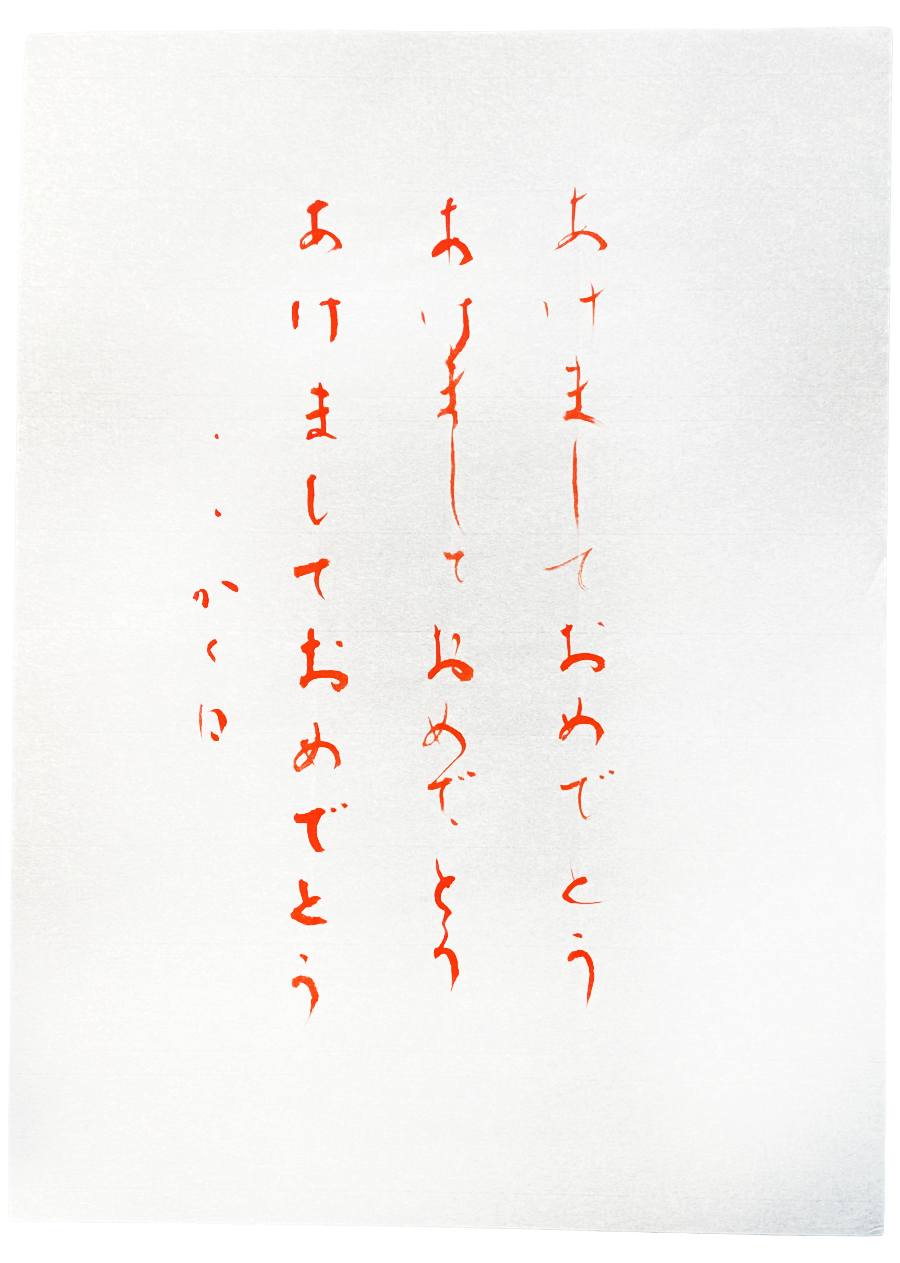 あけましておめでとう
あけましておめでとう
あけましておめでとう
かくに